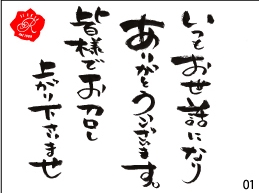 いつもお世話になり
ありがとうございます。
皆様でお召し
上がり下さいませ
01